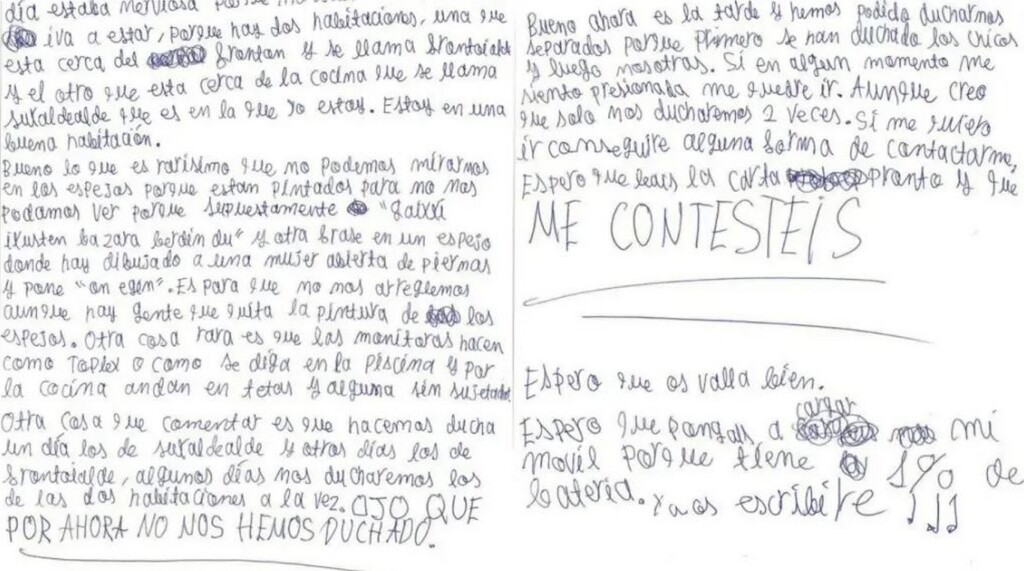 día estaba nerviosa
iva a estar, porque hay dos habitaciones, una que
esta cerca del frontan y se llama frontoialde
y el otro que esta cerca de la cocina que se llama
sukaldealde que es en la que yo estoy. Estoy en una
buena habitación.
Bueno lo que es rarisimo que no podemos mirarnos
en los espejos porque estan pintados para no nos
podamos ver porque supuestamente "Gaizki
ikusten bazara berdin du" y otra frase en un espejo
donde hay dibujado a una mujer abierta de piernas
y pone "on egin". Es para que no nos arreglemos
aunque hay gente que quita la pintura de los
espejos. Otra cosa rara es que las monitoras hacen
como Toplex o como se diga en la piscina y por
la cocina andan en tetas y alguna sin sujetador
Otra cosa que comentar es que hacemos ducha
un día los de sukaldealde y otros días los de
frontoialde, algunos días nos ducharemos los
de las dos habitaciones a la vez. OJO QUE
POR AHORA NO NOS HEMOS DUCHADO.
Bueno ahora es la tarde y hemos podido ducharnos
separados porque primero se han duchado los chicos
y luego nosotras. Si en algun momento me
siento presionada me querre ir. Aunque creo
que solo nos ducharemos 2 veces. Si me quiero
ir conseguire alguna forma de contactarme,
Espero que leais la carta pronto y que
ME CONTESTEIS
Espero que os valla bien.
cargar
Espero que pongais a mi
movil porque tiene 1% de
bateria. Ya os escribire